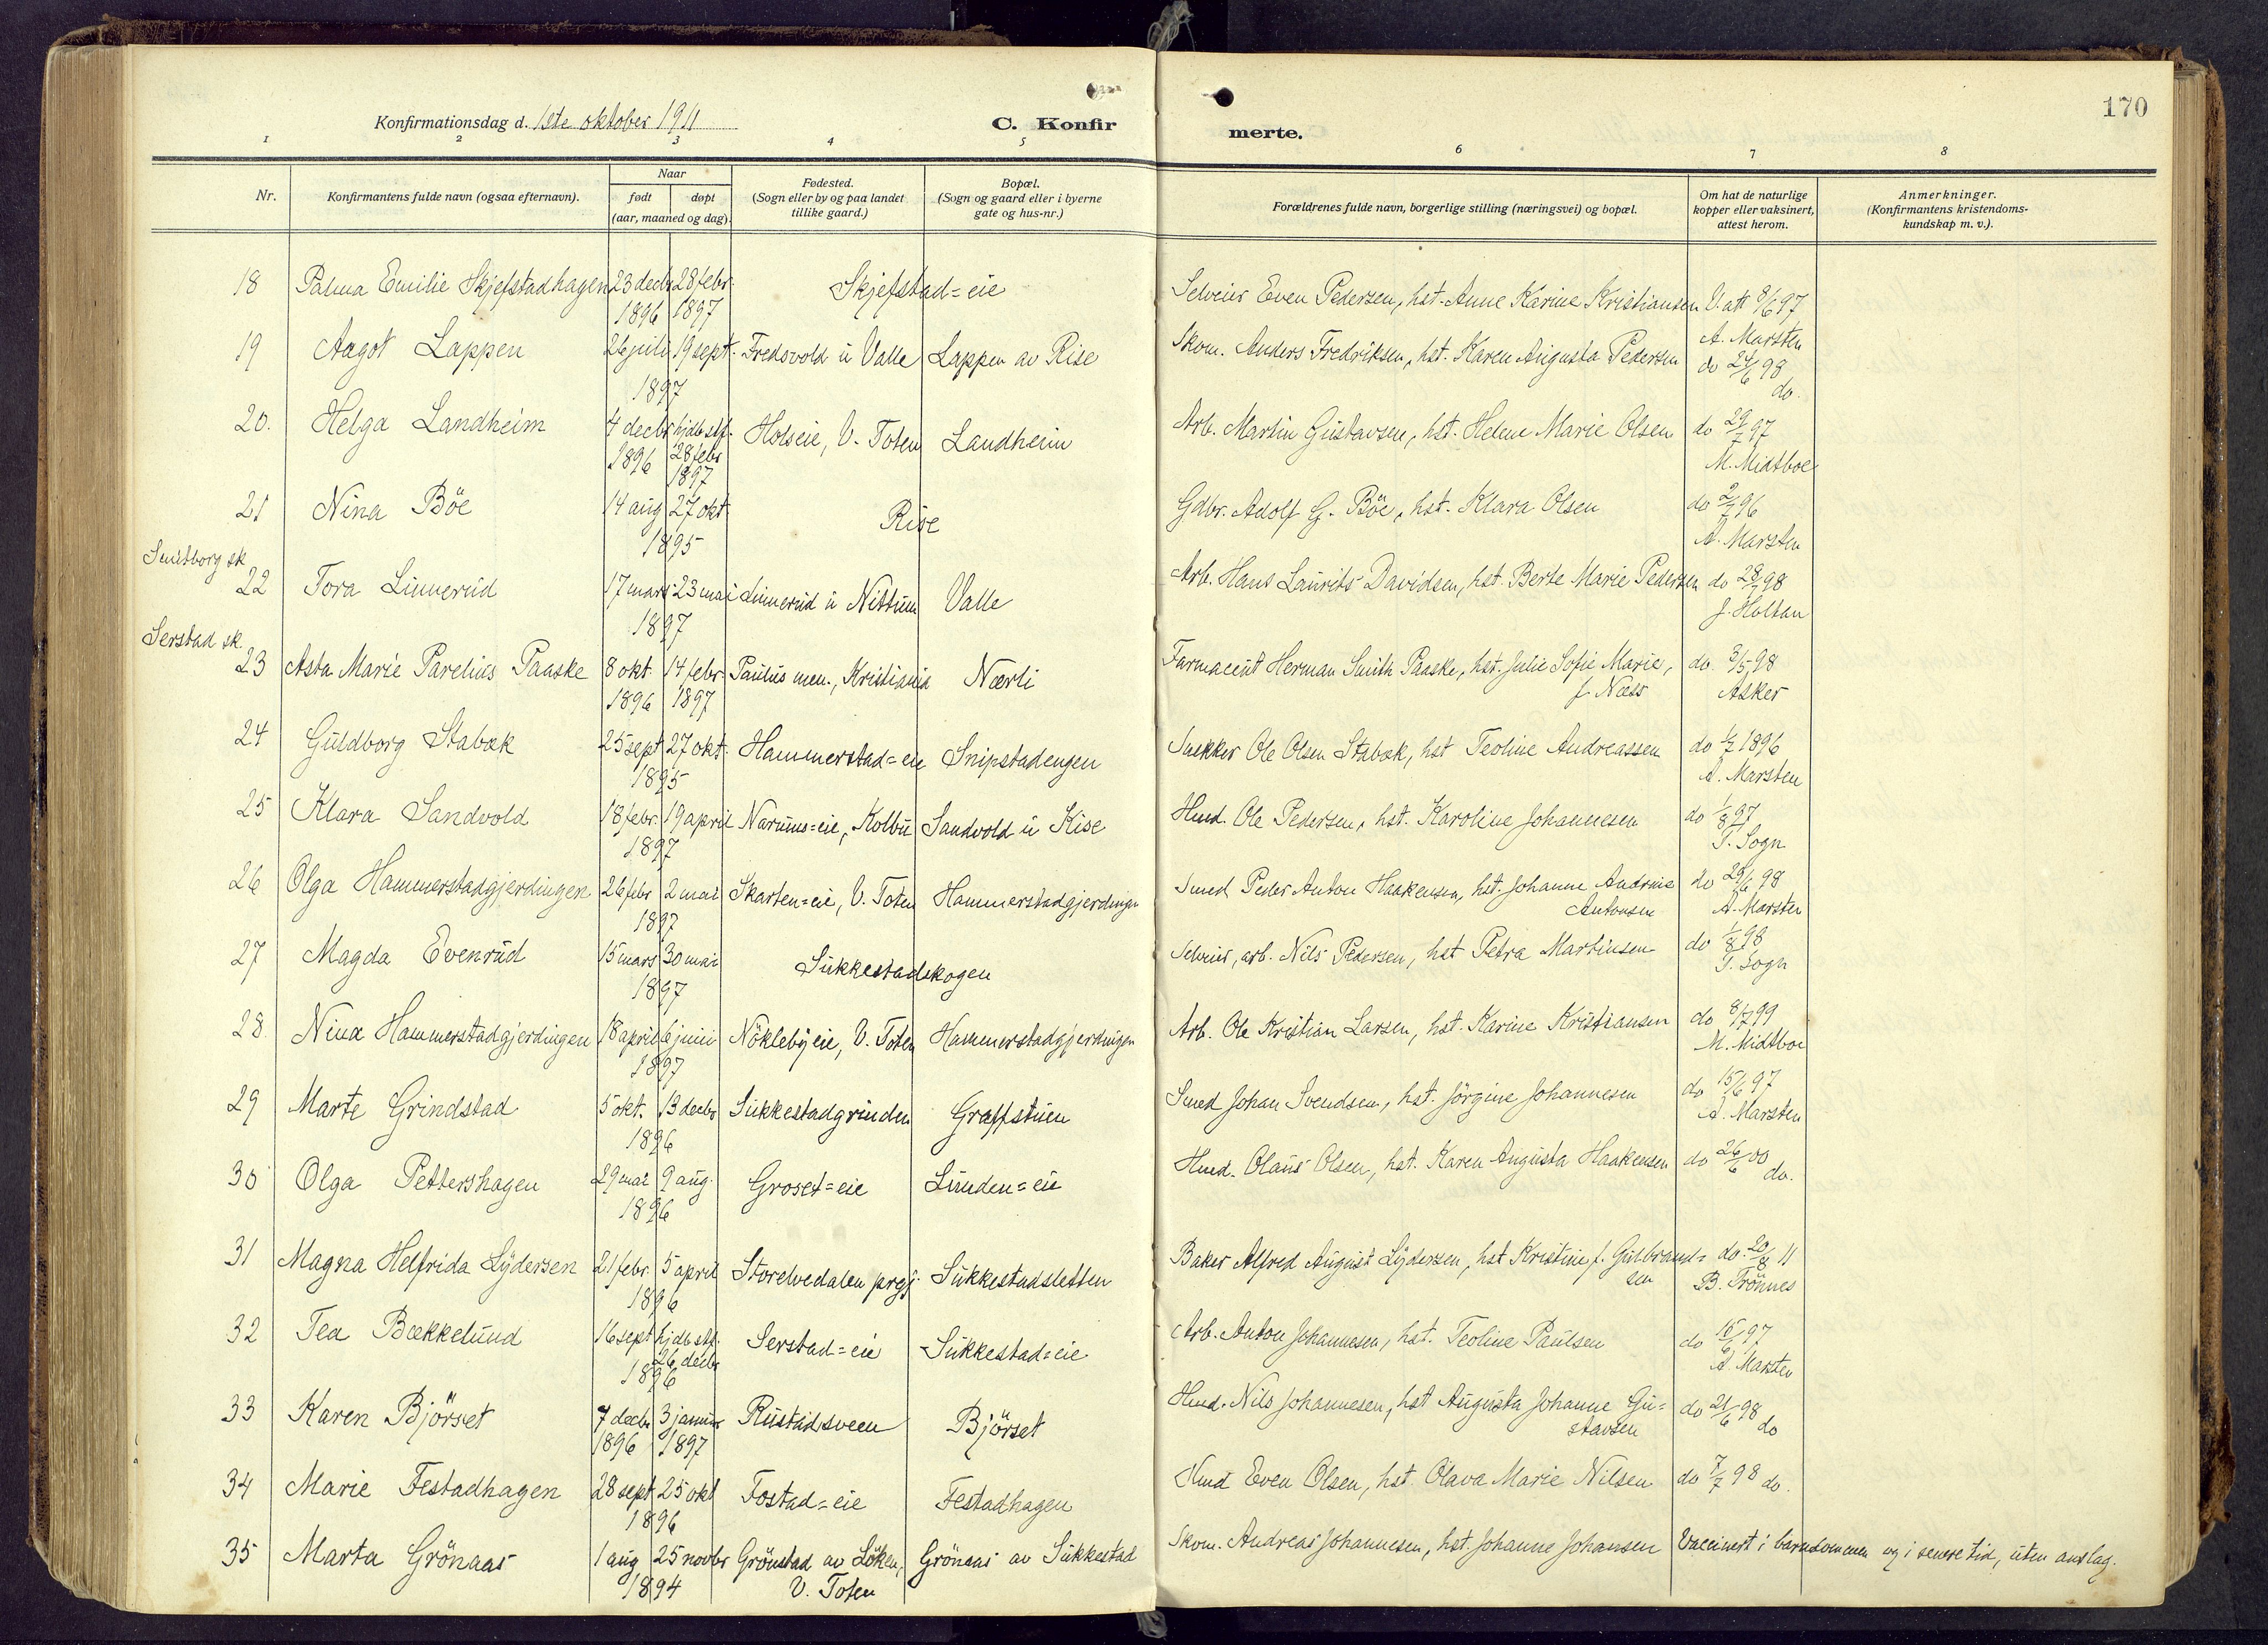 170
Konfirmationsdag d. 1ste oktober 1911
C. Konfirmerte.
1 2 3 4 5 6 7 8
Nr.
Konfirmantens fulde navn (ogsaa efternavn).
Naar
født døpt
(aar, maaned og dag).
Fødested.
(Sogn eller by og paa landet
tillike gaard.)
Bopæl.
(Sogn og gaard eller i byerne
gate og hus-nr.)
Forældrenes fulde navn, borgerlige stilling (næringsvei) og bopæl.
Om hat de naturlige
kopper eller vaksinert,
attest herom.
Anmerkninger.
(Konfirmantens kristendoms-
kundskap m. v.).
18 Palma Emilie Skjefstadhagen 23 decbr. 1896 28 febr. 1897 Skjefstad=eie Selveier Even Pedersen, hst. Anne Karine Kristiansen V. att 8/6 97
A. Marsten
19 Aagot Lappen 26 juli 19 sept. 1897 Fredsvold u Valle Lappen av Rise Skom. Anders Fredriksen, hst. Karen Augusta Pedersen do 24/6 98
do.
20. Helga Landheim 4 decbr 1896 hjdbstf. 28 febr 1897 Holseie, V. Toten Landheim Arb. Martin Gustavsen, hst. Helene Marie Olsen do 29/7 97
M. Midtboe
21 Nina Böe 14 aug 27 okt 1895 Rise Gdbr. Adolf G. Böe, hst. Klara Olsen do 2/7 96
A. Marsten
Smitborg sk
22 Tora Linnerud 17 mars 23 mai 1897 Linnerud u Nittum Valle Arb. Hans Laurits Davidsen, hst. Berte Marie Pedersen do 28/7 98
J. Holtan
Serstad sk.
23 Asta Marie Parelius Paaske 8 okt 1896 14 febr. 1897 Paulus men., Kristiania Nærli Farmaceut Herman Smith Paaske, hst. Julie Sofie Marie,
f. Næss do. 3/5 98
Asker
24 Guldborg Stabæk 25 sept 27 okt. 1895 Hammerstad=eie Snipstadengen Snekker Ole Olsen Stabæk, hst Teoline Andreassen do 1/7 1896
A. Marsten
25 Klara Sandvold 18 febr. 19 april 1897 Narums=eie, Kolbu Sandvold u Kise Husd. Ole Pedersen, hst. Karoline Johannesen do 1/8 97
T. Sogn
26 Olga Hammerstadgjerdingen 26 febr 2 mai 1897 Skarten=eie, V. Toten Hammerstadgjerdingen Smed Peder Anton Haakensen, hst. Johanne Andrine
Antonsen do 29/6 98
A. Marsten
27 Magda Evenrud 15 mars 30 mai 1897 Sukkestadskogen Selveier, arb. Nils Pedersen, hst Petra Martinsen do 1/8 98
T. Sogn
28 Nina Hammerstadgjerdingen 18 april 6 juni 1897 Nökleby eie, V. Toten Hammerstadgjerdingen Arb. Ole Kristian Larsen, hst. Karine Kristiansen do 8/7 99
M. Midtboe
29 Marte Grindstad 5 okt. 13 decbr 1896 Sukkestadgrinden Graffstuen Smed Johan Svendsen, hst. Jörgine Johannesen do 15/6 97
A. Marsten
30 Olga Pettershagen 29 mai 9 aug. 1896 Groset=eie Lunden=eie Husd. Olaus Olsen, hst. Karen Augusta Haakensen do 26/6 00
do.
31 Magna Helfrida Lydersen 21 febr. 5 april 1896 Storelvedalen prgj. Sukkestadsletten Baker Alfred August Lydersen, hst Kristine f. Gulbrand=
sen do 20/8 11
B. Trönnes
32 Tea Bækkelund 16 sept hjdb stf. 26 decbr 1896 Serstad=eie Sukkestad=eie Arb. Anton Johannesen, hst. Teoline Paulsen do 15/6 97
A Marsten
33 Karen Björset 7 decbr 1896 3 januar 1897 Rustadsveen Björset Husd. Nils Johannesen, hst Augusta Johanne Gu=
stavsen do 21/6 98
do
34 Marie Festadhagen 28 sept 25 okt 1896 Fostad=eie Festadhagen Husd Even Olsen, hst. Olava Marie Nilsen do 7/7 98 do.
35 Marta Grönaas 1 aug 25 novbr 1894 Grönstad av Löken,
V. Toten Grönaas av Sukkestad Skom. Andreas Johannesen, hst. Johanne Johansen Vaccinert i barndommen og i senere tid, uten anslag.